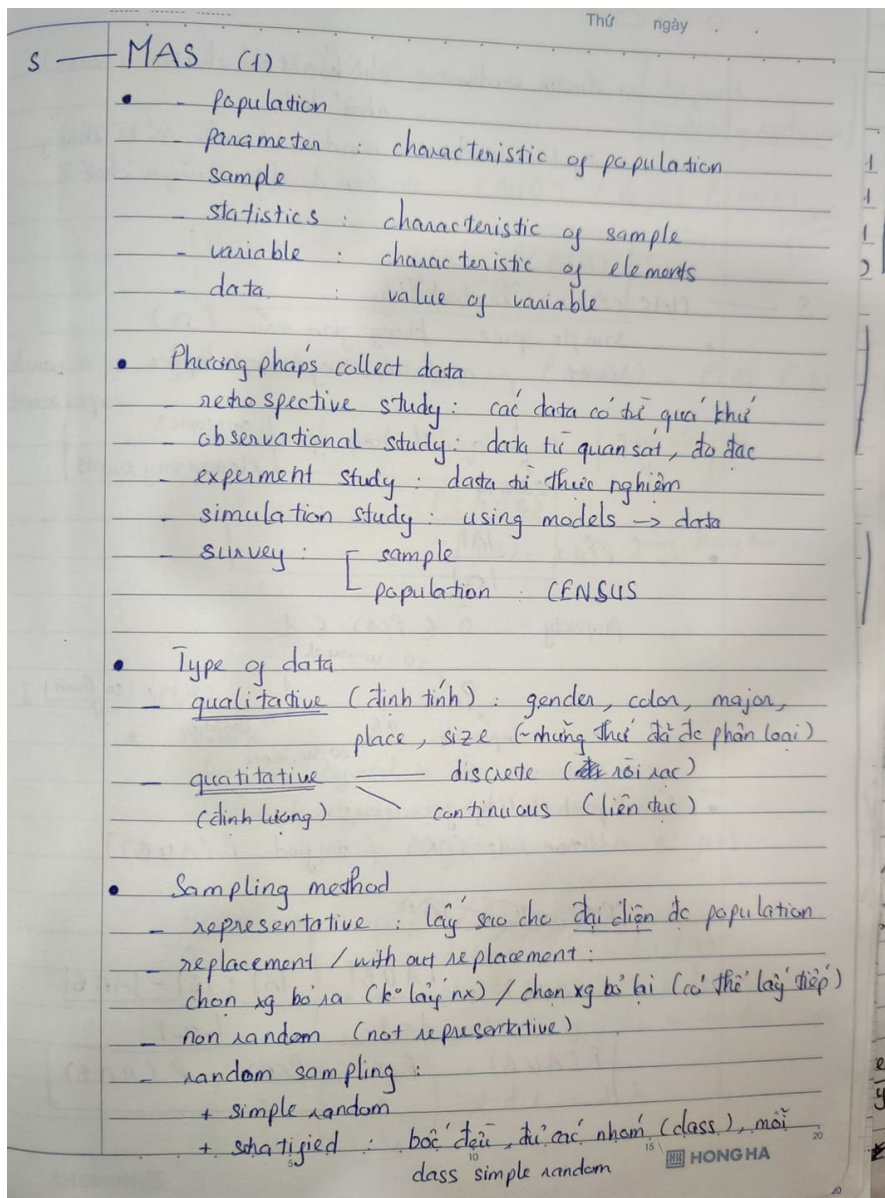 Thứ ngày
S — MAS (1)
• - population
- parameter : characteristic of population
- sample
- statistics : characteristic of sample
- variable : characteristic of elements
- data : value of variable
• Phương pháps collect data
- retrospective study : các data có từ quá khứ
- observational study : data từ quan sát, đo đạc
- experment study : data từ thực nghiệm
- simulation study : using models → data
- survey : sample
population : CENSUS
• Type of data
- qualitative (định tính) : gender, color, major,
place, size (~ những thứ đã đc phân loại)
- quatitative — discrete (rời rạc)
(định lượng) continuous (liên tục)
• Sampling method
- representative : lấy sao cho đại diện đc population
- replacement / with out replacement :
chọn xg bỏ ra (k° lấy nx) / chọn xg bỏ lại (có thể lấy tiếp)
- non random (not representative)
- random sampling :
+ simple random
+ stratigied : bốc đều, đủ các nhóm (class), mỗi
class simple random
5 10 15 20
HH HONG HA
20